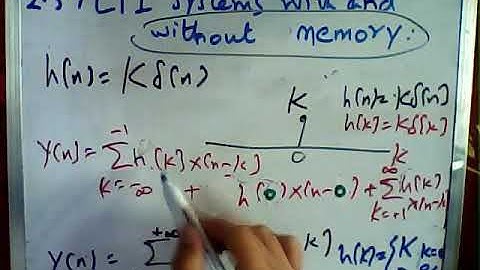 LTI systems with and
without memory.
h(n) = Kδ(n)
K
h(n) = Kδ(n)
h(k) = Kδ(k)
0
k
y(n) = Σ_{k=-∞}^{-1} h(k) x(n-k) + h(0) x(n-0) + Σ_{k=+1}^{∞} h(k) x(n-k)
y(n) = Σ^{+∞} k) h(k) = {K k=